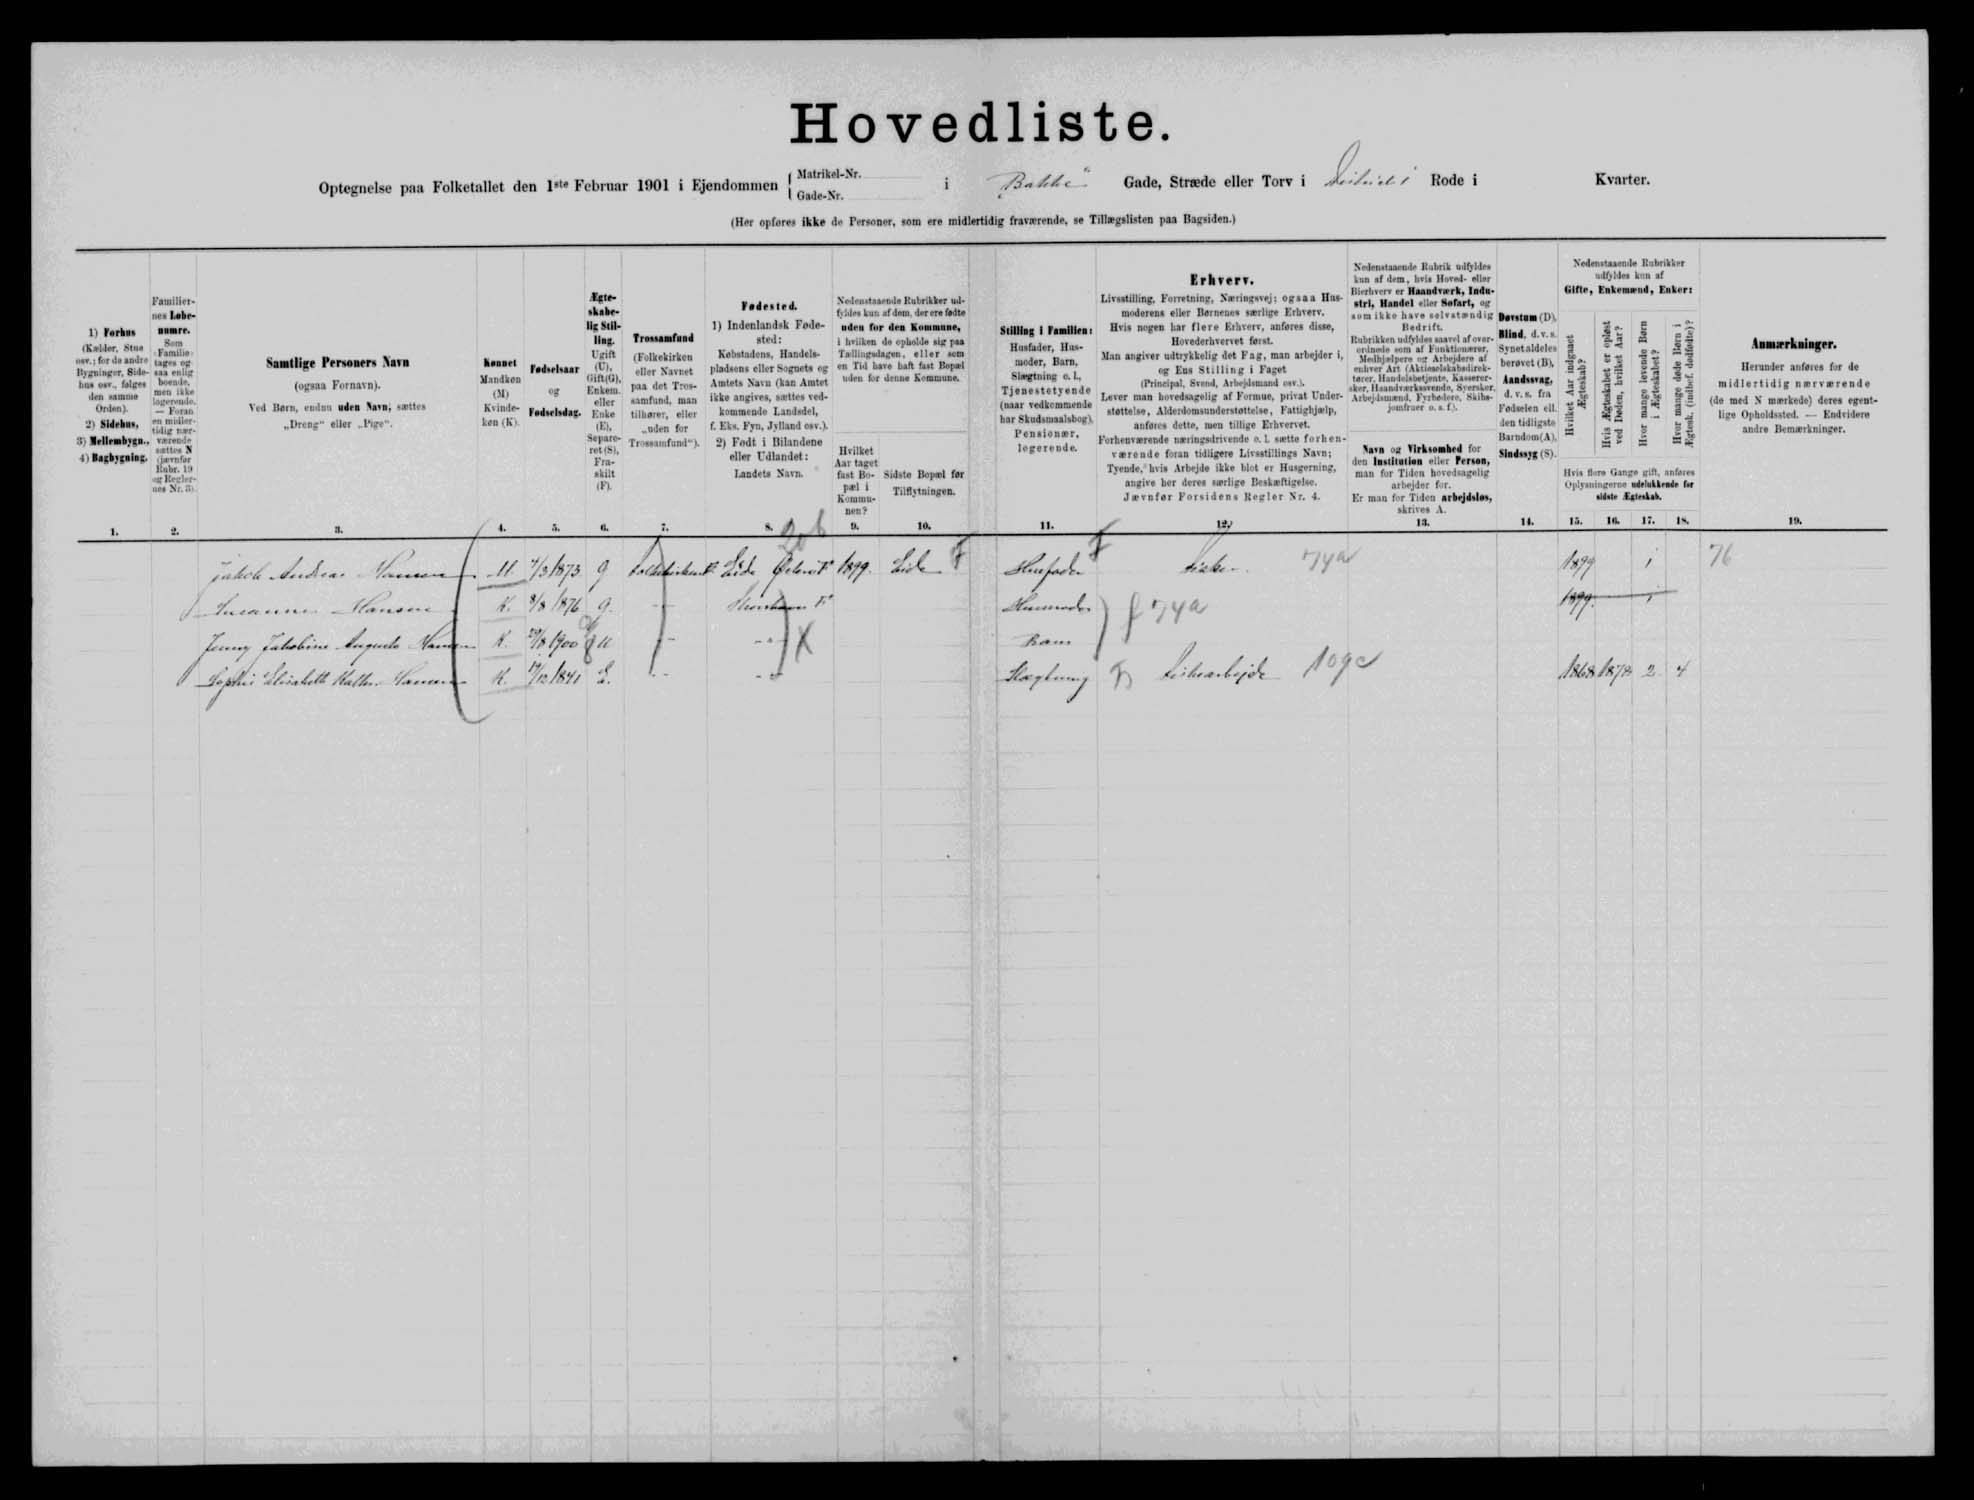 Hovedliste.
Optegnelse paa Folketallet den 1ste Februar 1901 i Ejendommen { Matrikel-Nr. Gade-Nr. i "Bakke" Gade, Stræde eller Torv i Rode i Kvarter.
(Her opføres ikke de Personer, som ere midlertidig fraværende, se Tillægslisten paa Bagsiden.)
1) Forhus
(Kælder, Stue
osv.; for de andre
Bygninger, Side-
hus osv., følges
den samme
Orden).
2) Sidehus,
3) Mellembygn.,
4) Bagbygning.
Familier-
nes Løbe-
numre.
Som
„Familie“
tages og-
saa enlig
boende,
men ikke
logerende.
— Foran
en midler-
tidig nær-
værende
sættes N
(jævnfør
Rubr. 19
og Regler-
nes Nr. 3).
Samtlige Personers Navn
(ogsaa Fornavn).
Ved Børn, endnu uden Navn, sættes
„Dreng“ eller „Pige“.
Kønnet
Mandkøn
(M)
Kvinde-
køn (K).
Fødselsaar
og
Fødselsdag.
Ægte-
skabe-
lig Stil-
ling.
Ugift
(U),
Gift(G),
Enkem.
eller
Enke
(E),
Separe-
ret (S),
Fra-
skilt
(F).
Trossamfund
(Folkekirken
eller Navnet
paa det Tros-
samfund, man
tilhører, eller
„uden for
Trossamfund“).
Fødested.
1) Indenlandsk Føde-
sted:
Købstadens, Handels-
pladsens eller Sognets og
Amtets Navn (kan Amtet
ikke angives, sættes ved-
kommende Landsdel,
f. Eks. Fyn, Jylland osv.).
2) Født i Bilandene
eller Udlandet:
Landets Navn.
Nedenstaaende Rubrikker ud-
fyldes kun af dem, der ere fødte
uden for den Kommune,
i hvilken de opholde sig paa
Tællingsdagen, eller som
en Tid have haft fast Bopæl
uden for denne Kommune.
Hvilket
Aar taget
fast Bo-
pæl i
Kommu-
nen?
Sidste Bopæl før
Tilflytningen.
Stilling i Familien:
Husfader, Hus-
moder, Barn,
Slægtning o. l.,
Tjenestetyende
(naar vedkommende
har Skudsmaalsbog),
Pensionær,
logerende.
Erhverv.
Livsstilling, Forretning, Næringsvej; ogsaa Hus-
moderens eller Børnenes særlige Erhverv.
Hvis nogen har flere Erhverv, anføres disse,
Hovederhvervet først.
Man angiver udtrykkelig det Fag, man arbejder i,
og Ens Stilling i Faget
(Principal, Svend, Arbejdsmand osv.).
Lever man hovedsagelig af Formue, privat Under-
støttelse, Alderdomsunderstøttelse, Fattighjælp,
anføres dette, men tillige Erhvervet.
Forhenværende næringsdrivende o. l. sætte forhen-
værende foran tidligere Livsstillings Navn;
Tyende, hvis Arbejde ikke blot er Husgerning,
angive her deres særlige Beskæftigelse.
Jævnfør Forsidens Regler Nr. 4.
Nedenstaaende Rubrik udfyldes
kun af dem, hvis Hoved- eller
Bierhverv er Haandværk, Indu-
stri, Handel eller Søfart, og
som ikke have selvstændig
Bedrift.
Rubrikken udfyldes saavel af over-
ordnede som af Funktionærer,
Medhjælpere og Arbejdere af
enhver Art (Aktieselskabsdirek-
tører, Handelsbetjente, Kasserer-
sker, Haandværkssvende, Syersker,
Arbejdsmænd, Fyrbødere, Skibs-
jomfruer o. s. f.).
Navn og Virksomhed for
den Institution eller Person,
man for Tiden hovedsagelig
arbejder for.
Er man for Tiden arbejdsløs,
skrives A.
Døvstum (D),
Blind, d. v. s.
Synet aldeles
berøvet (B),
Aandssvag,
d. v. s. fra
Fødselen ell.
den tidligste
Barndom (A),
Sindssyg (S).
Nedenstaaende Rubrikker
udfyldes kun af
Gifte, Enkemænd, Enker:
Hvilket Aar indgaaet
Ægteskab?
Hvis Ægteskabet er opløst
ved Døden, hvilket Aar?
Hvor mange levende Børn
i Ægteskabet?
Hvor mange døde Børn i
Ægtesk. (indbef. dødfødte)?
Hvis flere Gange gift, anføres
Oplysningerne udelukkende for
sidste Ægteskab.
Anmærkninger.
Herunder anføres for de
midlertidig nærværende
(de med N mærkede) deres egent-
lige Opholdssted. — Endvidere
andre Bemærkninger.
1. 2. 3. 4. 5. 6. 7. 8. 9. 10. 11. 12. 13. 14. 15. 16. 17. 18. 19.
Jakob Andreas Hansen M. 1873 G Eide 1899. Eide F Husfader F Fisker 74a 1899 1 76
Susanne Hansen K. 8/8 1876 G. Husmoder f 74a 1899. 1
Jenny Jakobine Augusta Hansen K. 1900 U X Barn
Sophie Elisabeth Hansen K. 1841 E. Slægtning F Fiskearbejde 109c 1868 2 4